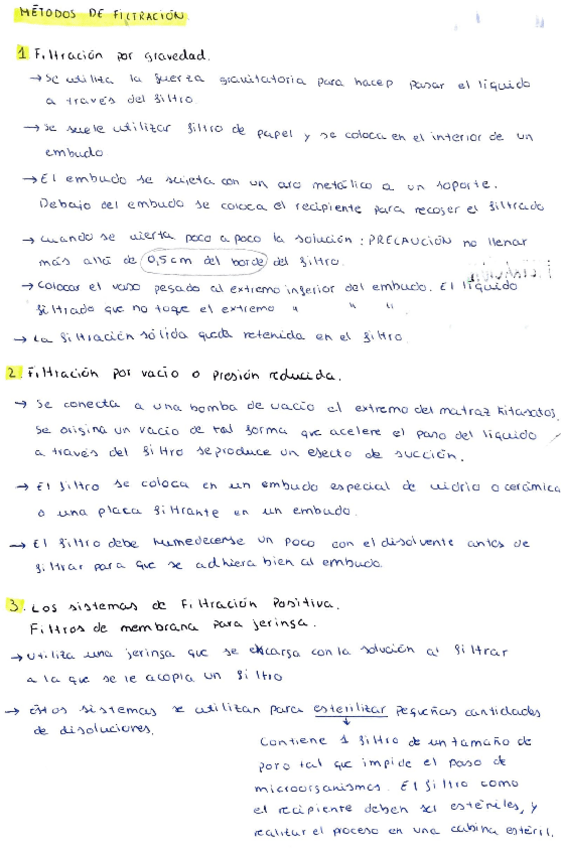 MÉTODOS DE FILTRACIÓN
1 Filtración por gravedad.
→ se utiliza la fuerza gravitatoria para hacer pasar el líquido
a través del filtro.
→ se suele utilizar filtro de papel y se coloca en el interior de un
embudo
→ El embudo se sujeta con un aro metálico a un soporte.
Debajo del embudo se coloca el recipiente para recoger el filtrado
→ cuando se vierta poco a poco la solución: PRECAUCIÓN no llenar
más allá de 0,5 cm del borde del filtro.
→ Colocar el vaso pegado al extremo inferior del embudo. El líquido
filtrado que no toque el extremo " " "
→ La filtración sólida queda retenida en el filtro.
2. Filtración por vacio o presión reducida.
→ Se conecta a una bomba de vacio el extremo del matraz kitasatos.
se origina un vacio de tal forma que acelere el paso del líquido
a través del filtro se produce un efecto de succión.
→ El filtro se coloca en un embudo especial de vidrio o cerámica
o una placa filtrante en un embudo.
→ El filtro debe humedecerse un poco con el disolvente antes de
filtrar para que se adhiera bien al embudo.
3. Los sistemas de Filtración Positiva.
Filtros de membrana para jeringa.
→ Utiliza una jeringa que se encarga con la solución a filtrar
a la que se le acopla un filtro
→ Estos sistemas se utilizan para esterilizar pequeñas cantidades
de disoluciones.
Contiene 1 filtro de un tamaño de
poro tal que impide el paso de
microorganismos. El filtro como
el recipiente deben ser estériles, y
realizar el proceso en una cabina estéril.